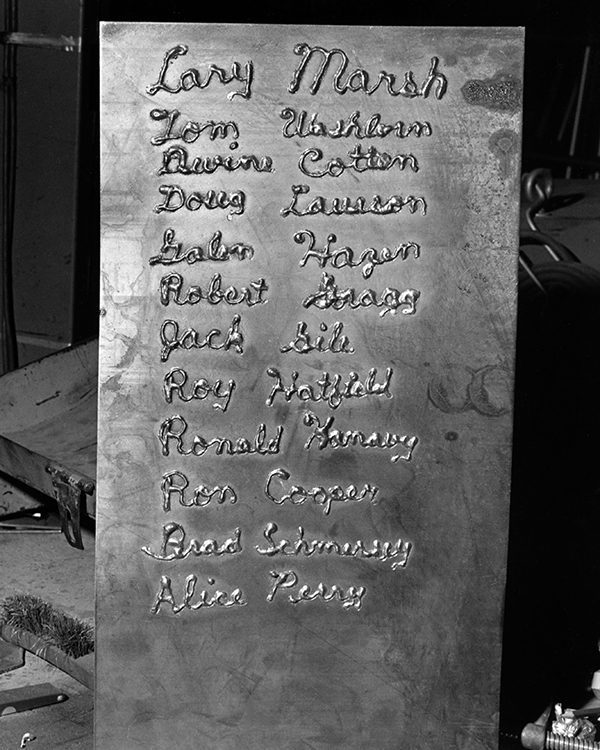 Lary Marsh
Tom Washborn
Dwine Cotten
Doug Lawson
Galen Hazen
Robert Gragg
Jack Gile
Roy Hatfield
Ronald Hanauy
Ron Cooper
Brad Schmersey
Alice Perry